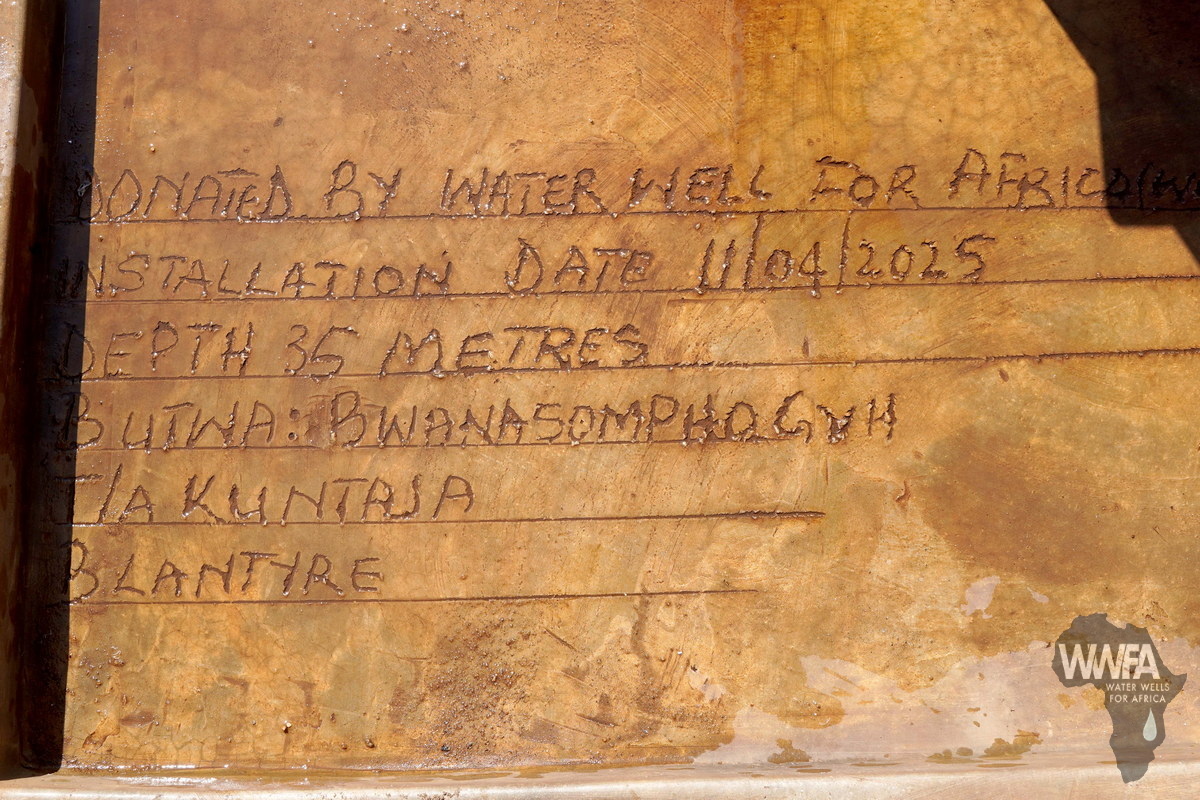 DONATED BY WATER WELL FOR AFRICA(W
INSTALLATION DATE 11/04/2025
DEPTH 35 METRES
BUTWA: BWANASOMPHO GVH
T/A KUNTAJA
BLANTYRE
WWFA
WATER WELLS
FOR AFRICA